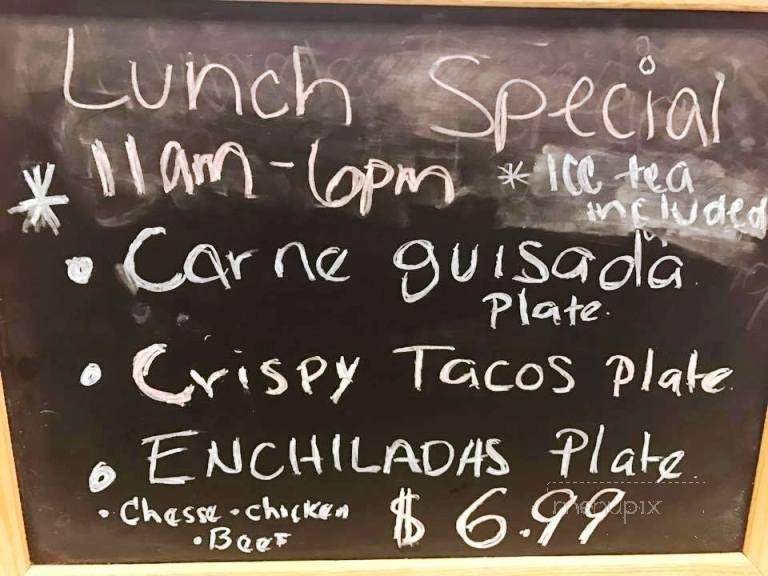 Lunch Special
11am-6pm * ICE tea
included
* 
• Carne guisada
Plate.
• Crispy Tacos Plate.
• ENCHILADAS Plate.
• Chesse • chicken $6.99
• Beef
menupix